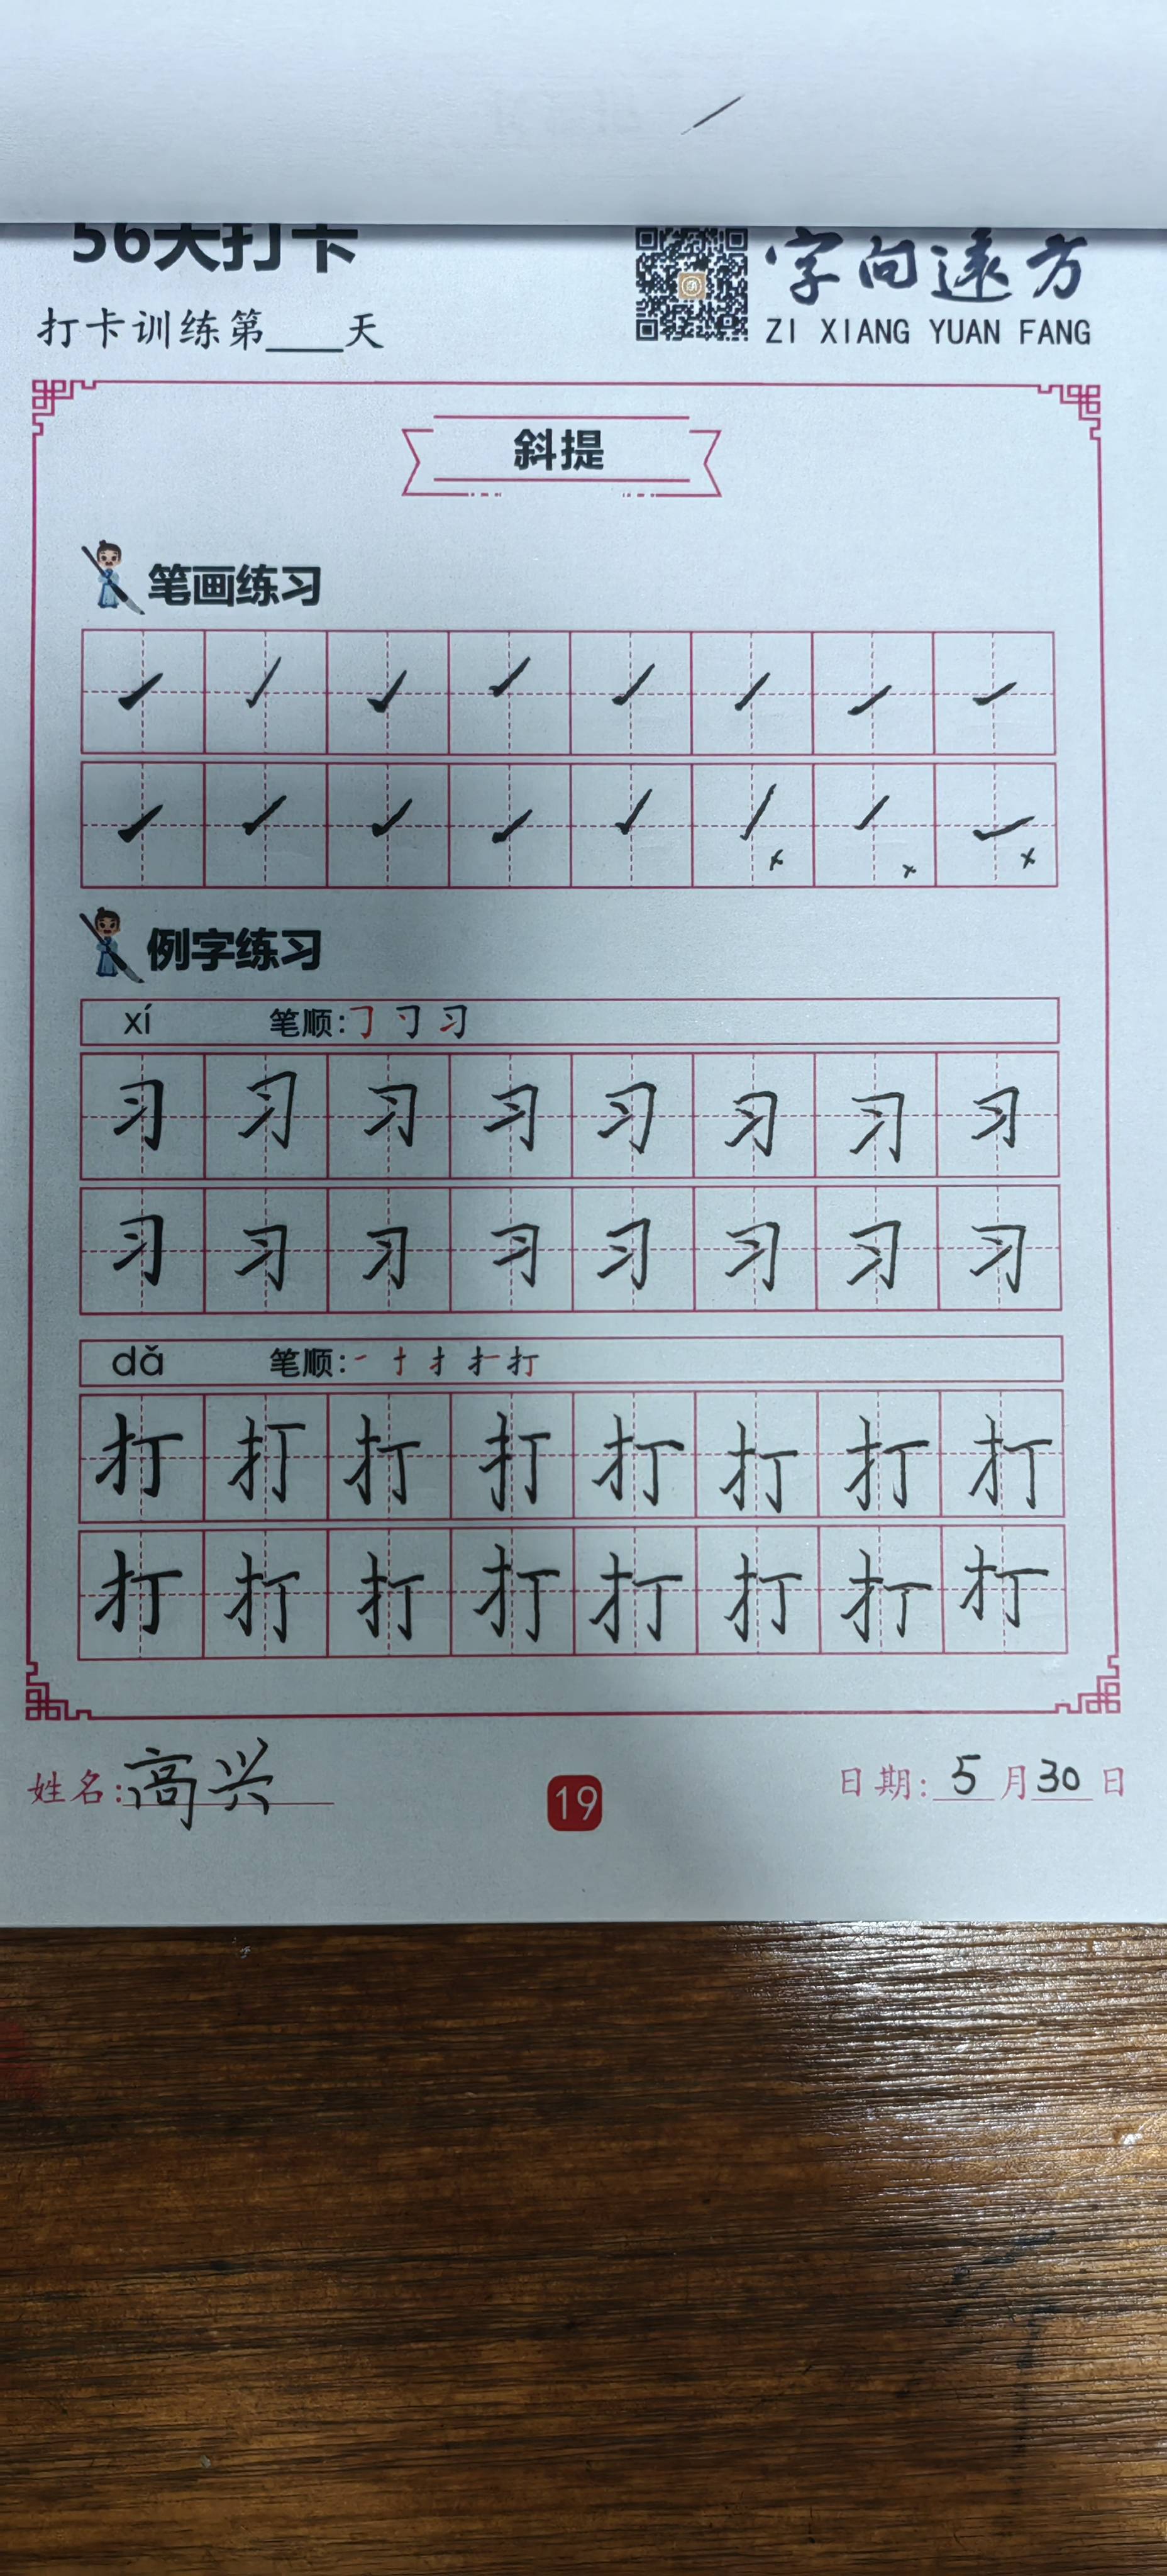 56天打卡
字向远方
打卡训练第____天
ZI XIANG YUAN FANG
斜提
笔画练习
例字练习
xí 笔顺:
习 习 习 习 习 习 习 习
习 习 习 习 习 习 习 习
dǎ 笔顺:一 十 扌 扌一 打
打 打 打 打 打 打 打 打
打 打 打 打 打 打 打 打
姓名:高兴
19
日期:5月30日